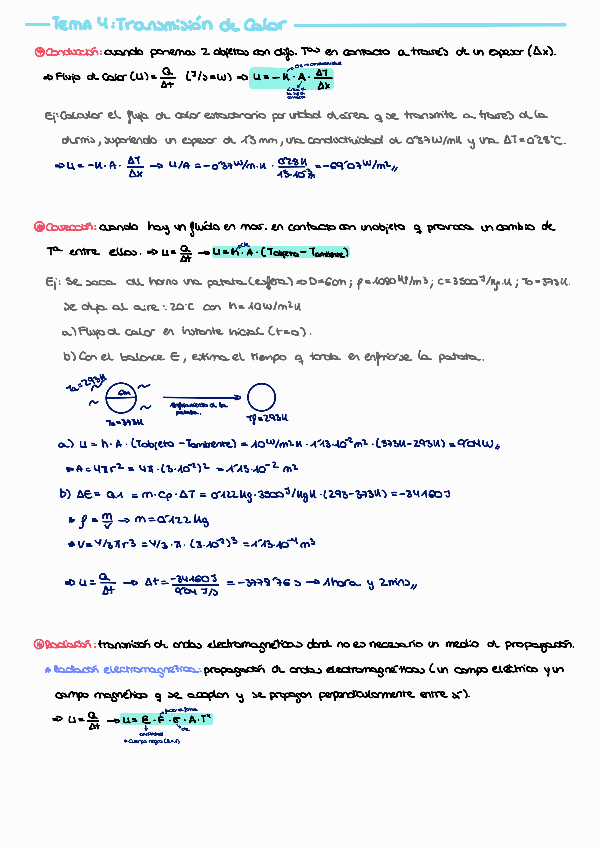 Tema 4: Transmisión de Calor
Conducción: cuando ponemos 2 objetos con difs. Tas en contacto a través de un espesor (Δx).
⇒ Flujo de Calor (U) = Q/Δt (J/s=W) ⇒ U = -K · A · ΔT/Δx
Ej: Calcular el flujo de calor estacionario por unidad de área q se transmite a través de la
dermis, suponiendo un espesor de 13 mm, una conductividad de 0'37 W/mK y una ΔT=0'28°C.
⇒ U = -K · A · ΔT/Δx → U/A = -0'37 W/m·K · 0'28K/13·10⁻³ = -6'907 W/m²
Convección: cuando hay un fluido en mov. en contacto con un objeto q provoca un cambio de
Tª entre ellos. ⇒ U = Q/Δt → U = h · A · (Tobjeto - Tambiente)
Ej: Se saca del horno una patata (esfera) ⇒ D=6cm; ρ=1080 Kg/m3; C=3500 J/Kg·K; To=373K.
Se deja al aire: 20°C con h=10 W/m²K
a) Flujo de calor en instante inicial (t=0).
b) Con el balance E, estima el tiempo q tarda en enfriarse la patata.
Ta=293K
6m
To=373K
Enfriamiento de la
patata.
Tf=293K
a) U = h · A · (Tobjeto - Tambiente) = 10 W/m²K · 1'13·10⁻² m² · (373K - 293K) = 9'04 W
⇒ A = 4πr² = 4π · (3·10⁻²)² = 1'13·10⁻² m²
b) ΔE = Q = m · Cp · ΔT = 0'122 Kg · 3500 J/KgK · (293-373K) = -34160 J
ρ = m/V → m = 0'122 Kg
V = 4/3πr3 = 4/3 · π · (3·10⁻²)3 = 1'13·10⁻⁴ m3
⇒ U = Q/Δt → Δt = -34160 J / 9'04 J/s = -3778'76 s → 1 hora y 2 mins
Radiación: transmisión de ondas electromagnéticas donde no es necesario un medio de propagación.
Radiación electromagnética: propagación de ondas electromagnéticas (un campo eléctrico y un
campo magnético q se acoplan y se propagan perpendicularmente entre sí).
⇒ U = Q/Δt → U = e · F · σ · A · T⁴
Cuerpo negro (e=1)